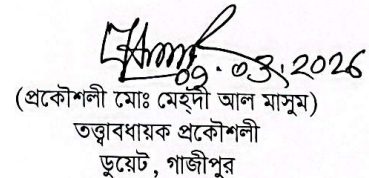 09.03.2026
(প্রকৌশলী মোঃ মেহ্দী আল মাসুম)
তত্ত্বাবধায়ক প্রকৌশলী
ডুয়েট, গাজীপুর